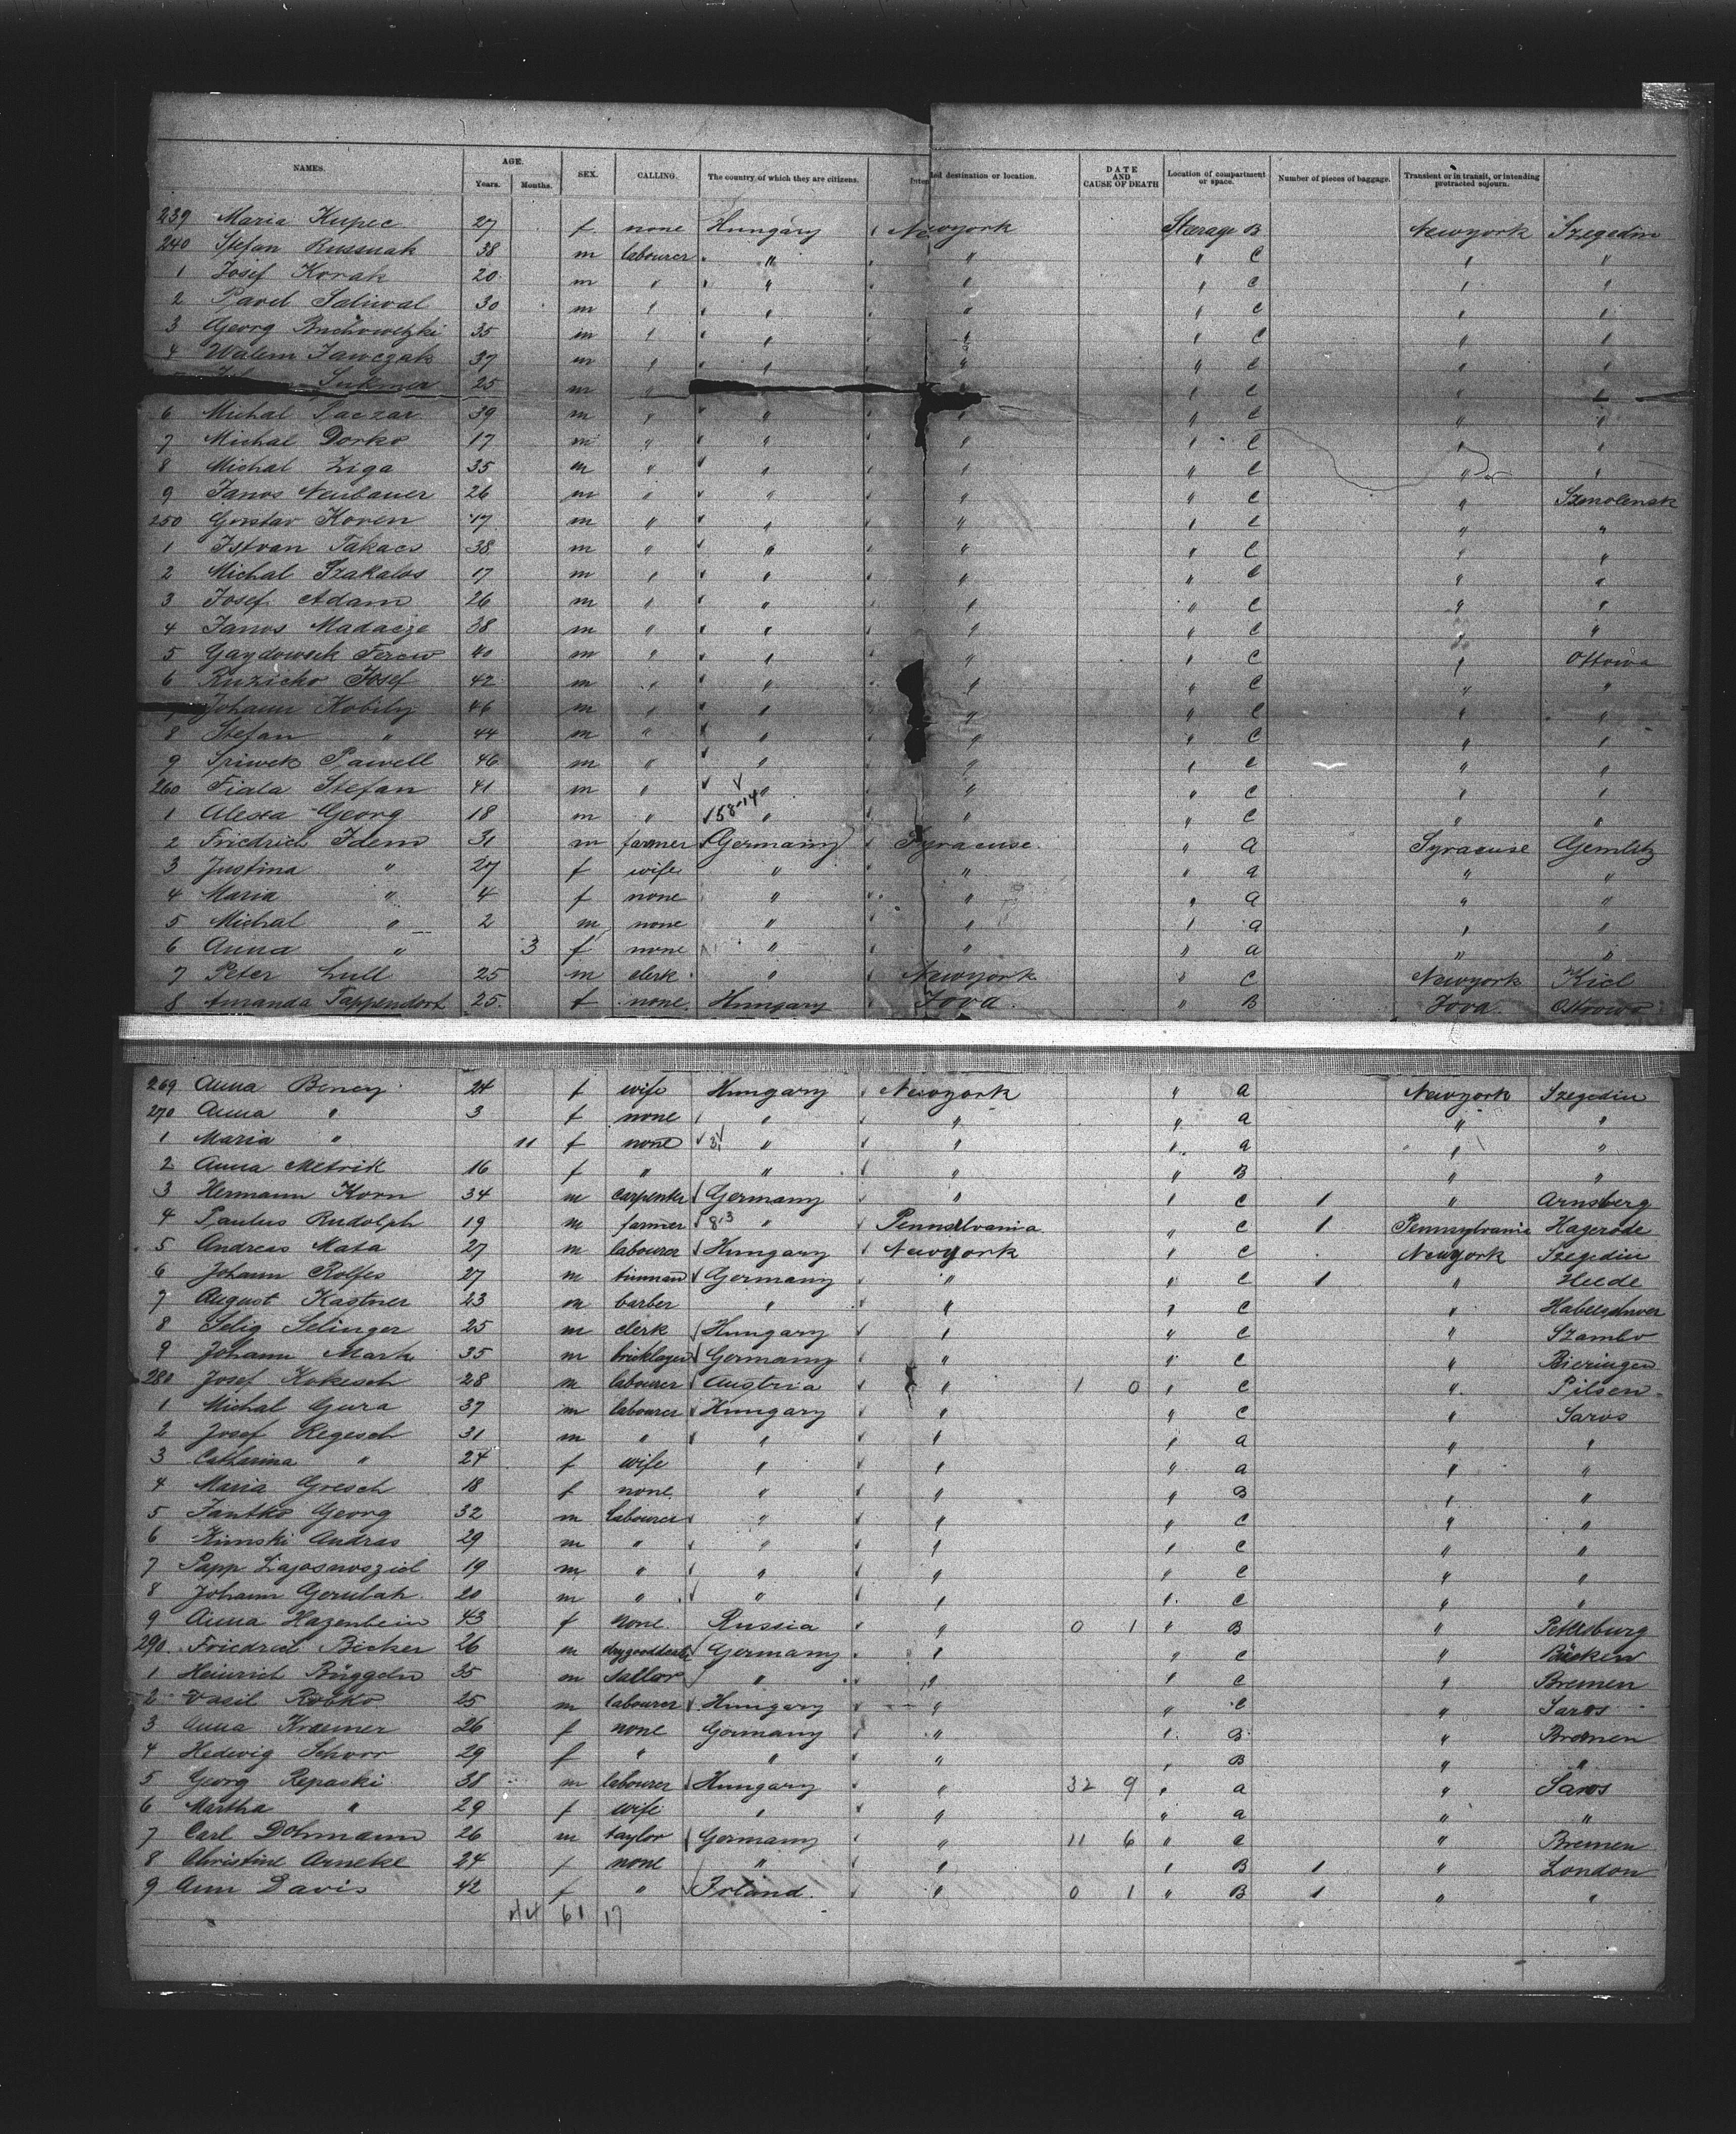 NAMES. AGE. Years. Months. SEX. CALLING. The country of which they are citizens. Intended destination or location. DATE AND CAUSE OF DEATH Location of compartment or space. Number of pieces of baggage. Transient or in transit, or intending protracted sojourn.
239 Maria Kupec 27 f none Hungary Newyork Sterage B Newyork Szegedin
240 Stefan Russnak 38 m labourer " " " C " "
1 Josef Korak 20 m " " " " C " "
2 Pavel 30 m " " " " C " "
3 Georg 35 m " " " " C " "
4 Walem Jawczak 37 m " " " " C " "
25 m " " " C " "
6 Michal Paczar 39 m " " " " C " "
7 Michal Dorko 17 m " " " " C " "
8 Michal Ziga 35 m " " " " C " "
9 Janos Neubauer 26 m " " " " C " Szmolensk
250 Gustav Koren 17 m " " " " C " "
1 Istvan Takacs 38 m " " " " C " "
2 Michal Szakalos 17 m " " " " C " "
3 Josef Adam 26 m " " " " C " "
4 Janos Madacze 38 m " " " " C " "
5 Gaydowsek 40 m " " " " C " Ottowa
6 Ruzicko Josef 42 m " " " " C " "
Johann Kobily 46 m " " " " C " "
8 Stefan " 44 m " " " " C " "
9 Sriwek Pawell 46 m " " " " C " "
260 Fiala Stefan 41 m " " " " C " "
1 Alexa Georg 18 m " 58-14 " " " C " "
2 Friedrich Idem 31 m farmer Germany Syracuse " a Syracuse Gemlitz
3 Justina " 27 f wife " " " a " "
4 Maria " 4 f none " " " a " "
5 Michal " 2 m none " " " a " "
6 Anna " 3 f none " " " a " "
7 Peter Lull 25 m clerk " Newyork " C Newyork Kiel
8 Amanda Tappendorf 25 f none Hungary Jova " B Jova Ottrowo
269 Anna Beney 24 f wife Hungary Newyork " a Newyork Szegedin
270 Anna " 3 f none " " " a " "
1 Maria " 11 f none 3 " " " a " "
2 Anna Metrik 16 f " " " " B " "
3 Hermann Korn 34 m carpenter Germany " " C 1 " Arnsberg
4 Paulus Rudolph 19 m farmer 8-3 " Pennslvania " C 1 Pennsylvania Hagerode
5 Andreas Mata 27 m labourer Hungary Newyork " C Newyork Szegedin
6 Johann Rolfes 27 m tinman Germany " " C 1 " Heede
7 August Kastner 23 m barber " " " C " Habelschwer
8 Selig Selinger 25 m clerk Hungary " " C " Szambo
9 Johann Mark 35 m bricklayer Germany " " C " Bieringen
280 Josef Kokesch 28 m labourer Austria " 1 0 " C " Pilsen
1 Michal Gura 37 m labourer Hungary " " C " Saros
2 Josef Regesch 31 m " " " " a " "
3 Catharina " 24 f wife " " " a " "
4 Maria Gresch 18 f none " " " B " "
5 Jantko Georg 32 m labourer " " " C " "
6 Kimski Andras 29 m " " " " C " "
7 Papp 19 m " " " " C " "
8 Johann Gerulah 20 m " " " " C " "
9 Anna Hazenbein 43 f none Russia " 0 1 " B " Petersburg
290 Friedrich Bicker 26 m drygooddealer Germany " " C " Bücken
1 Heinrich Brüggeln 35 m sallor " " " C " Bremen
2 Vasil Robko 25 m labourer Hungary " " C " Saros
3 Anna Kraemer 26 f none Germany " " B " Bremen
4 Hedwig Schorr 29 f " " " " B " "
5 Georg Repaski 38 m labourer Hungary " 32 9 " a " Saros
6 Martha " 29 f wife " " " a " "
7 Carl Dohmann 26 m taylor Germany " 11 6 " C " Bremen
8 Christine Arneke 24 f none " " " B 1 " London
9 Ann Davis 42 f " Irland " 0 1 " B 1 " "
44 61 17